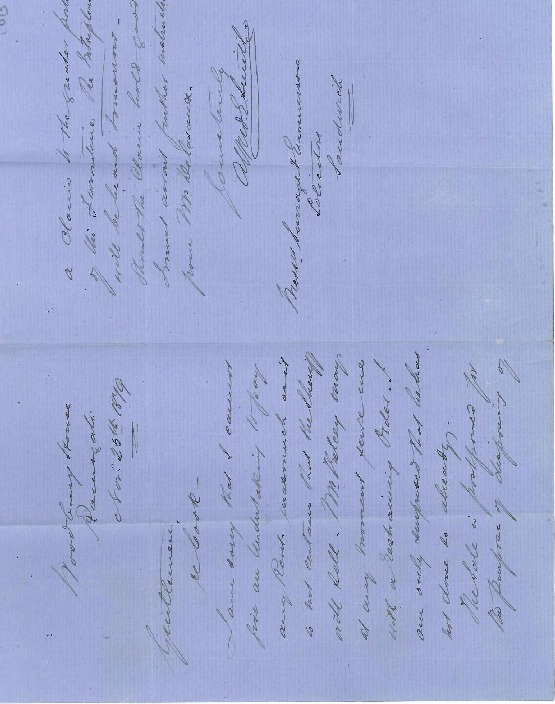 Ramsgate
Nov 25th 1879
Gentlemen
re Cook -
I am sorry that I cannot
give an undertaking to pay
any Rent inasmuch as it
is not certain that the Sheriff
will sell. Mr may
at any moment serve me
with a Restraining Order. I
am only surprised that he has
not done so already.
The sale is postponed for
the purpose of disposing of
a Claim to the greater
of the Furniture. The
will be heard tomorrow -
Should the Claim hold good
I must await further
from Mr
Yours truly
Alfred E Smith
Messrs & Emmerson
Solicitors
Sandwich